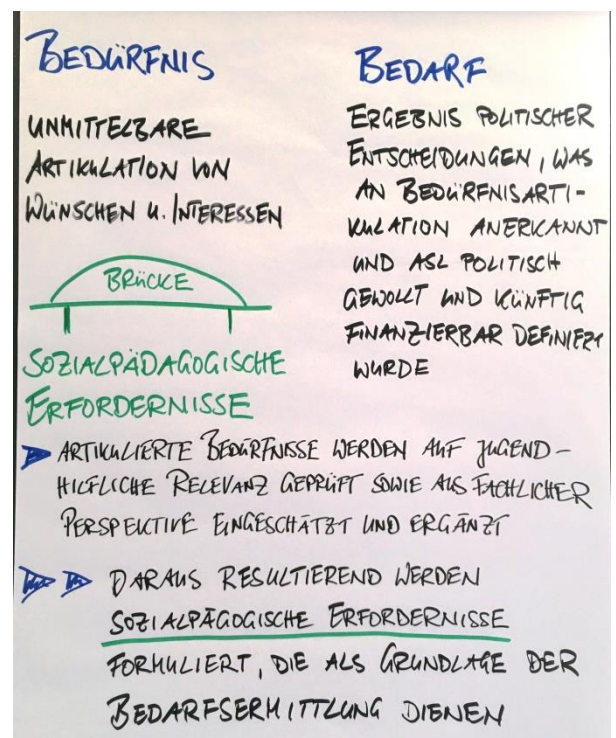 BEDÜRFNIS
UNMITTELBARE
ARTIKULATION VON
WÜNSCHEN U. INTERESSEN
BEDARF
ERGEBNIS POLITISCHER
ENTSCHEIDUNGEN, WAS
AN BEDÜRFNISARTI-
KULATION ANERKANNT
UND ASL POLITISCH
GEWOLLT UND KÜNFTIG
FINANZIERBAR DEFINIERT
WURDE
BRÜCKE
SOZIALPÄDAGOGISCHE
ERFORDERNISSE
ARTIKULIERTE BEDÜRFNISSE WERDEN AUF JUGEND-
HILFLICHE RELEVANZ GEPRÜFT SOWIE AUS FACHLICHER
PERSPEKTIVE EINGESCHÄTZT UND ERGÄNZT
DARAUS RESULTIEREND WERDEN
SOZIALPÄGOGISCHE ERFORDERNISSE
FORMULIERT, DIE ALS GRUNDLAGE DER
BEDARFSERMITTLUNG DIENEN